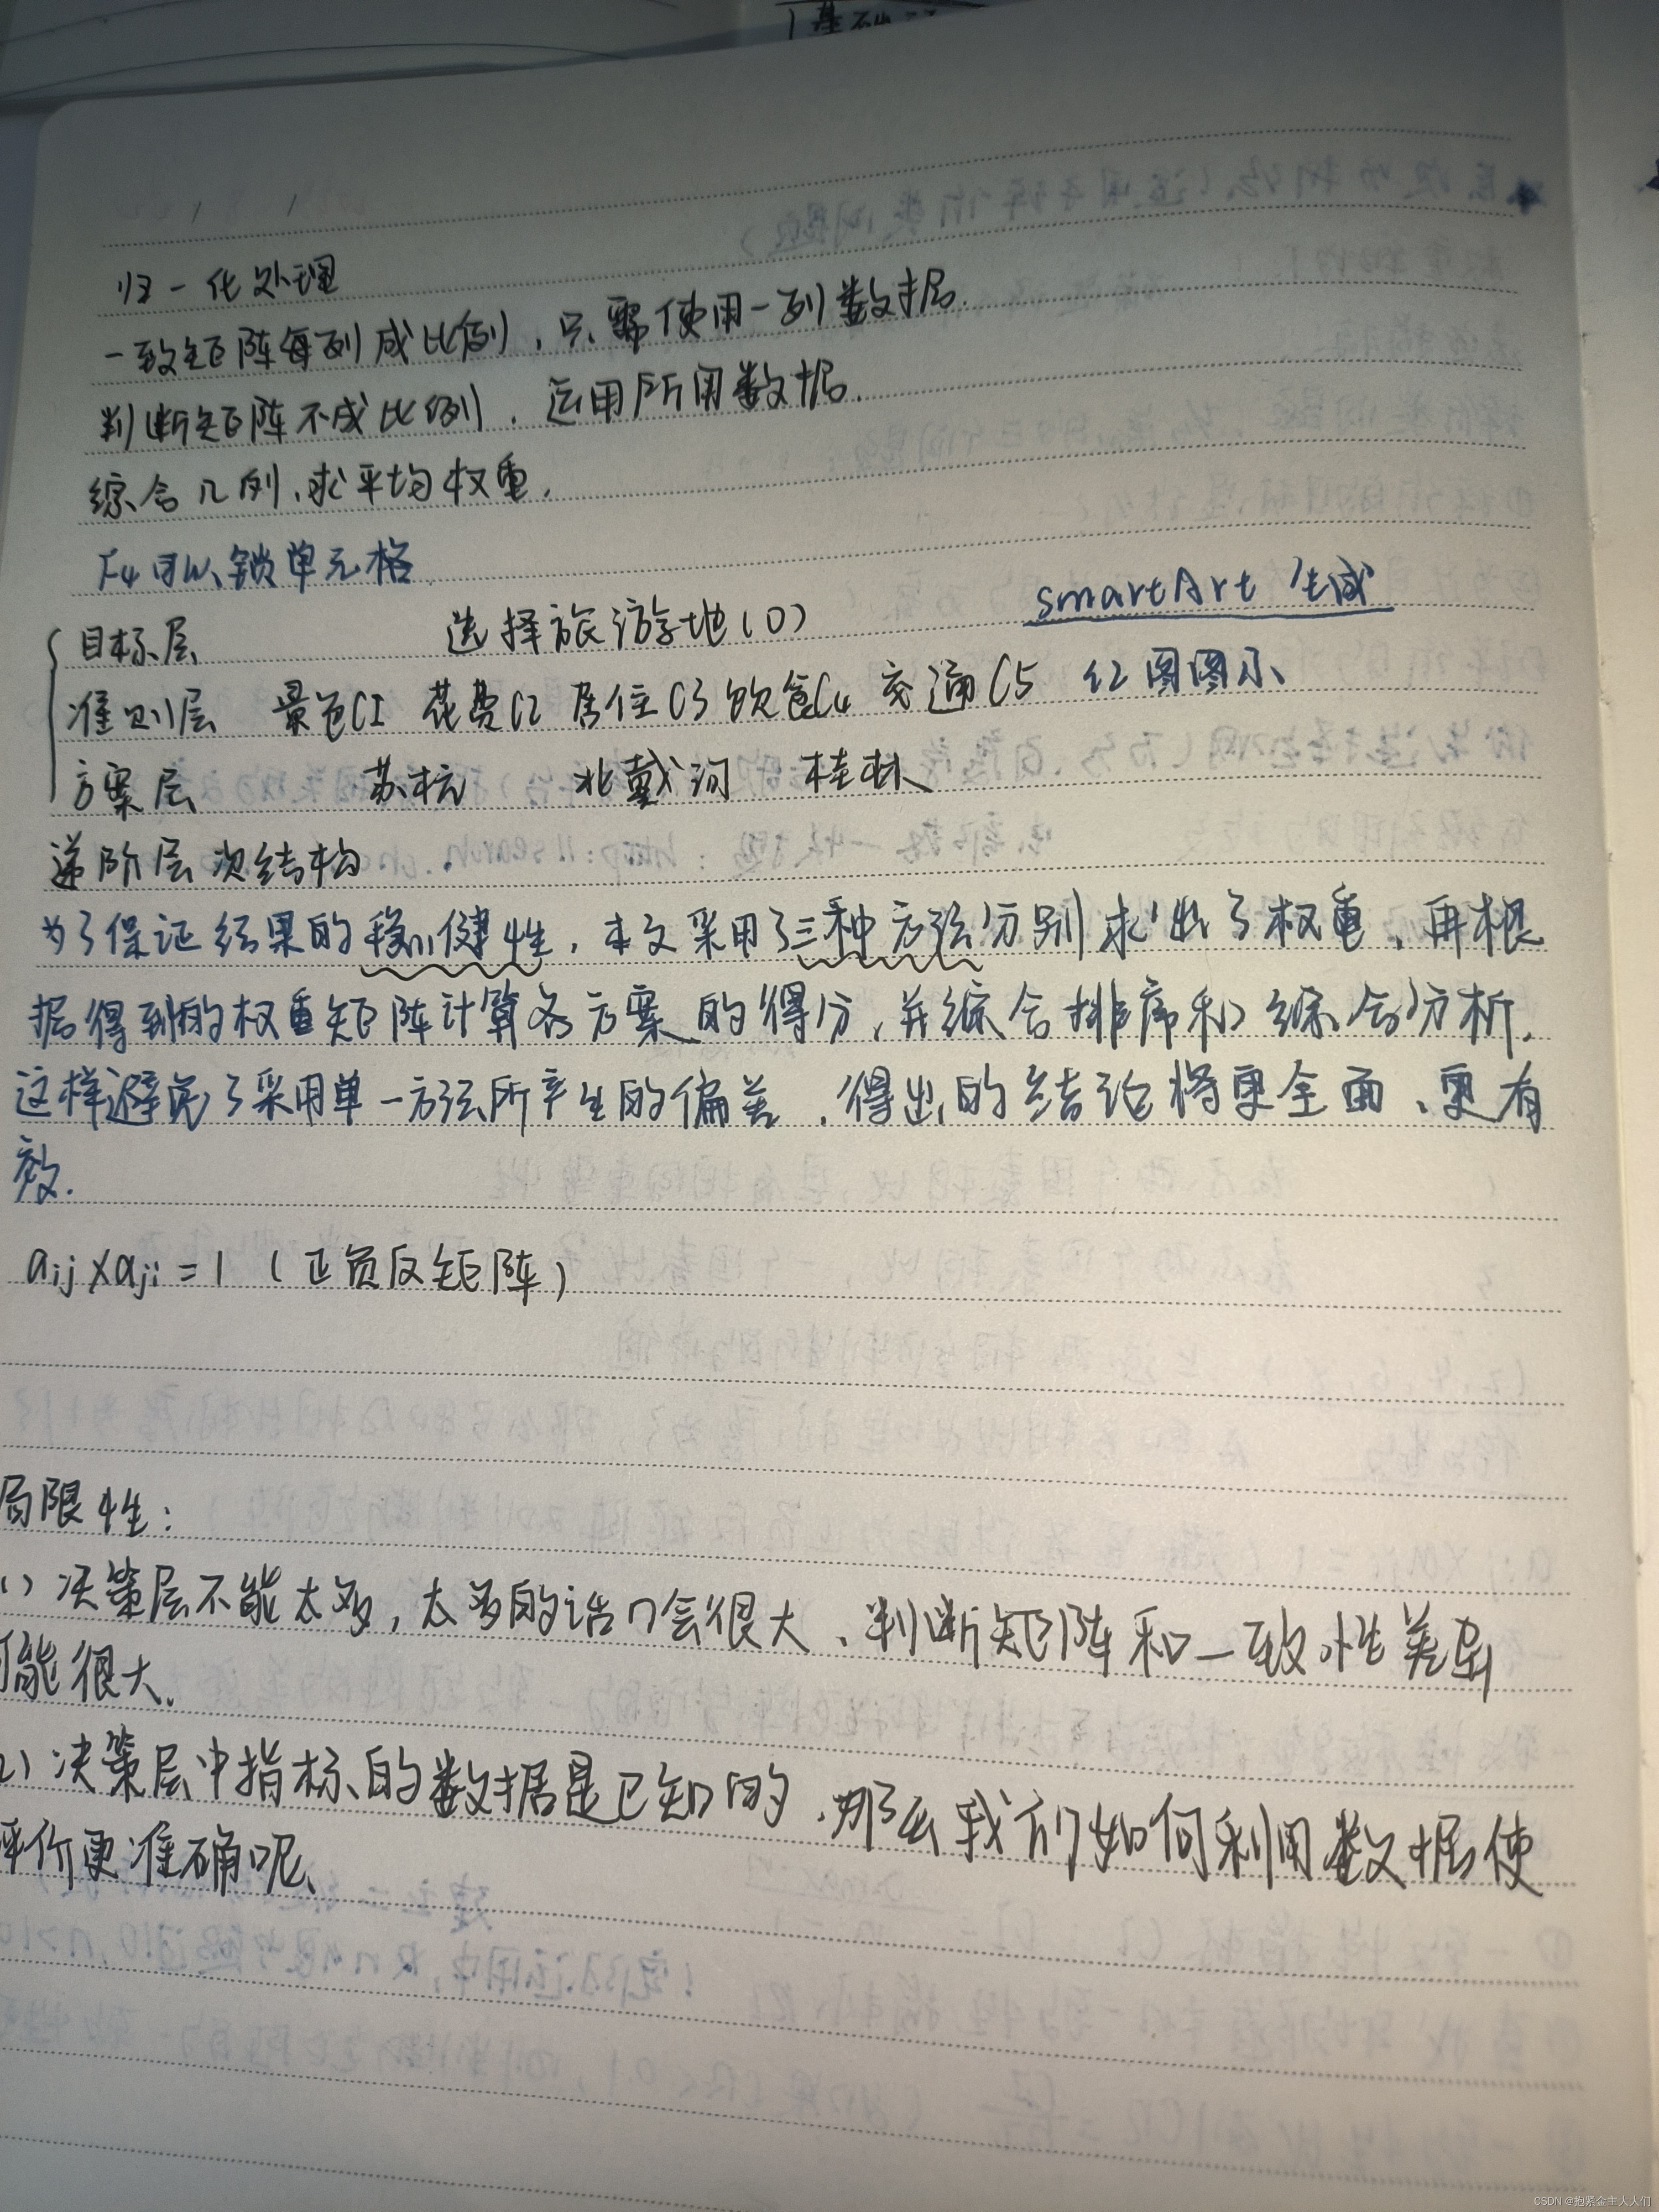 归一化处理
一致矩阵每列成比例，只需使用一列数据.
判断矩阵不成比例，运用所用数据.
综合几列，求平均权重.
F4可以锁单元格
smartArt 生成
目标层 选择旅游地(O)
准则层 景色C1 花费C2 居住C3 饮食C4 交通C5 图图示
方案层 苏杭 北戴河 桂林
递阶层次结构
为了保证结果的稳健性，本文采用了三种方法分别求出了权重，再根
据得到的权重矩阵计算各方案的得分，并综合排序和综合分析.
这样避免了采用单一方法所产生的偏差，得出的结论将更全面、更有
效.
aij×aji=1 (正负反矩阵)
局限性：
(1) 决策层不能太多，太多的话n会很大、判断矩阵和一致性差别
可能很大.
(2) 决策层中指标的数据是已知的，那么我们如何利用数据使
评价更准确呢、
CSDN @抱紧金主大大们